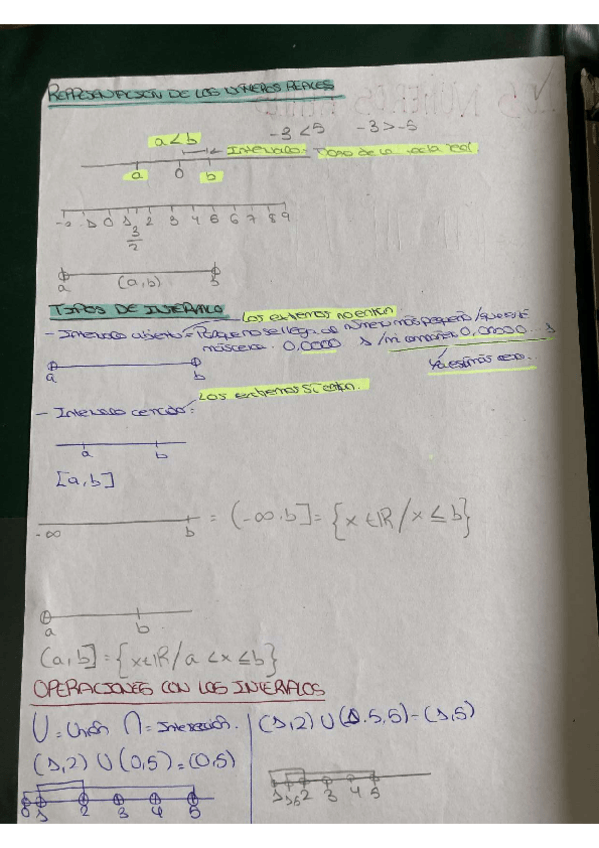 REPRESENTACIÓN DE LOS NÚMEROS REALES
a < b
-3 < 5 -3 > -5
INTERVALO: Trozo de la recta real
a 0 b
-2 -1 0 1 3/2 2 3 4 5 6 7 8 9
a (a,b) b
TIPOS DE INTERVALO
Los extremos no entran
- Intervalo abierto = Porque no se llega al número más pequeño / que esté
más cerca. 0,0000 1 / 0,00000...1
Ya es más cero...
a b
Los extremos SÍ entran.
- Intervalo cerrado:
a b
[a,b]
-∞ b = (-∞,b] = {x∈ℝ/x ≤ b}
a b
(a,b] = {x∈ℝ/a < x ≤ b}
OPERACIONES CON LOS INTERVALOS
U = Unión ∩ = Intersección.
(1,2) U (0,5) = (0,5)
0 1 2 3 4 5
(1,2) U (1.5,5) = (1,5)
1 1,5 2 3 4 5